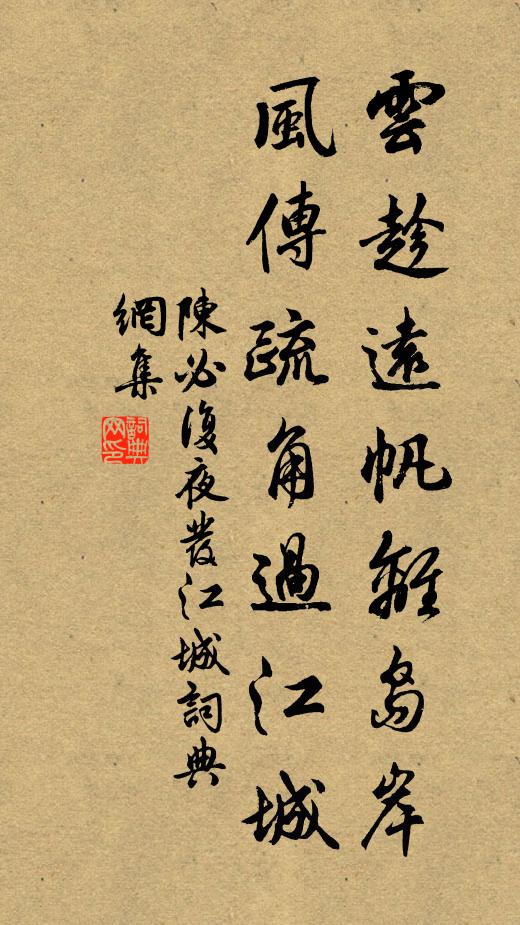 雲趁遠帆離島岸
風傳疏角過江城
陳必復夜發江城詞典
網集
詞典
网印